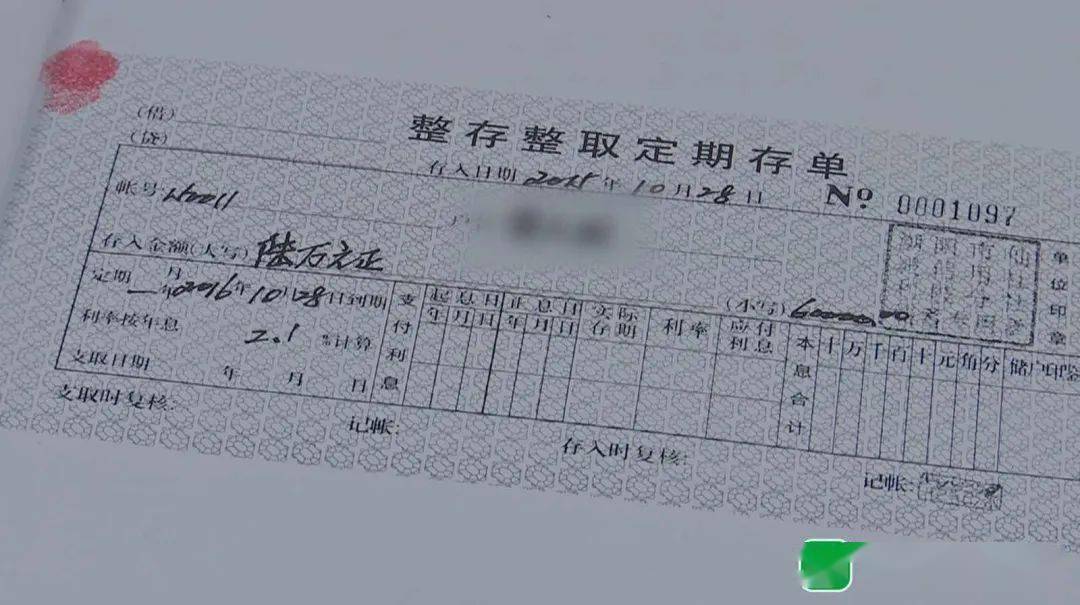 (借)
整存整取定期存单
(贷)
存入日期 2015年10月28日
№ 0001097
帐号
户
存入金额(大写) 陆万元正
(小写) 60000.00
单位印章
定期 一 月 年 2016年10月28日到期
利率按年息 2.1 %计算
支取日期 年 月 日
支付利息
起息日 年 月 日
止息日 年 月 日
实际存期
利率
应付利息
本息合计
十 万 千 百 十 元 角 分
储户印鉴
支取时复核:
记帐:
存入时复核:
记帐: